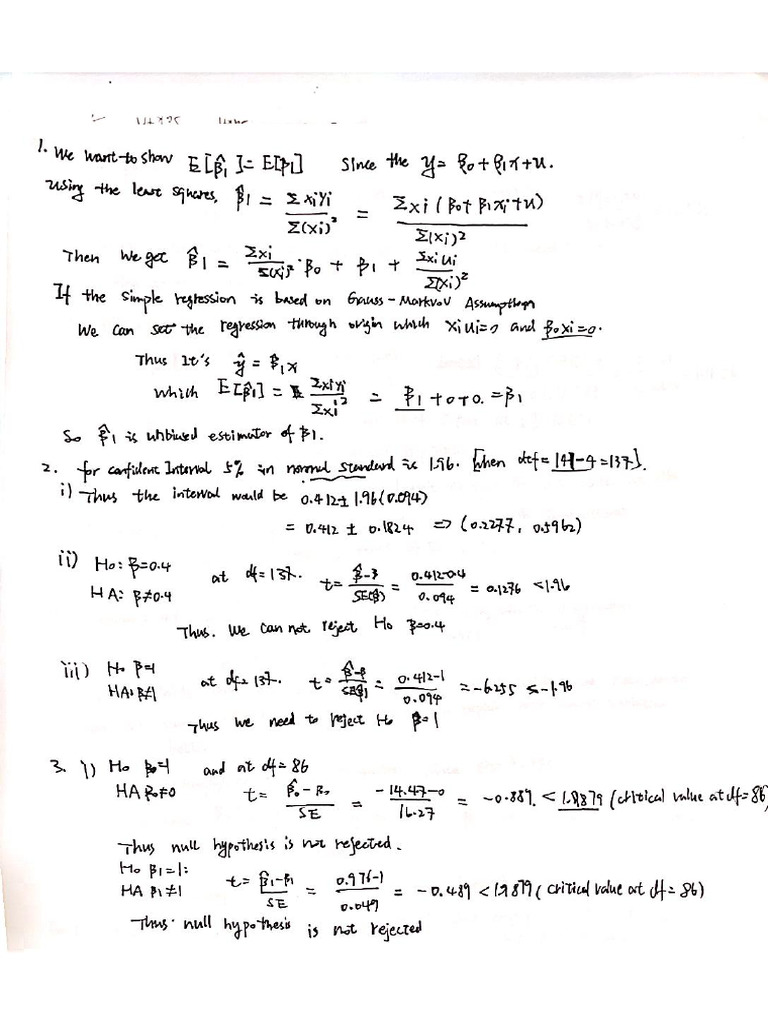 1. We want to show E[β̂1] = E[β1] Since the y = β0 + β1x + u.
Using the least squares, β̂1 = Σxiyi / Σ(xi)² = Σxi(β0 + β1xi + u) / Σ(xi)²
Then we get β̂1 = Σxi / Σ(xi)² · β0 + β1 + Σxiui / Σ(xi)²
If the simple regression is based on Gauss-Markov Assumption
We can set the regression through origin which xiui=0 and β0xi=0.
Thus It's ŷ = β̂1x
which E[β̂1] = Σxiyi / Σxi² = β1 + 0 + 0. = β1
So β̂1 is unbiused estimator of β1.
2. for confident Interval 5% in normal standard is 1.96. [when def = 141-4=137].
i) Thus the interval would be 0.412 ± 1.96(0.094)
= 0.412 ± 0.1824 => (0.2277, 0.5962)
ii) Ho: β=0.4
HA: β≠0.4 at df=137. t = (β̂-β) / SE(β̂) = (0.412-0.4) / 0.094 = 0.1276 < 1.96
Thus. We can not reject Ho β=0.4
iii) Ho β=1
HA: β≠1 at df=137. t = (β̂-β) / SE(β̂) = (0.412-1) / 0.094 = -6.255 ≤ -1.96
Thus we need to reject Ho β=1
3. i) Ho β0=1 and at df=86
HA β0≠0 t = (β̂0-β0) / SE = (-14.47-0) / 16.27 = -0.889. < 1.9879 (critical value at df=86,
Thus null hypothesis is not rejected.
Ho β1=1:
HA β1≠1 t = (β̂1-β1) / SE = (0.976-1) / 0.049 = -0.489 < 1.9879 (critical value at df = 86)
Thus null hypothesis is not rejected